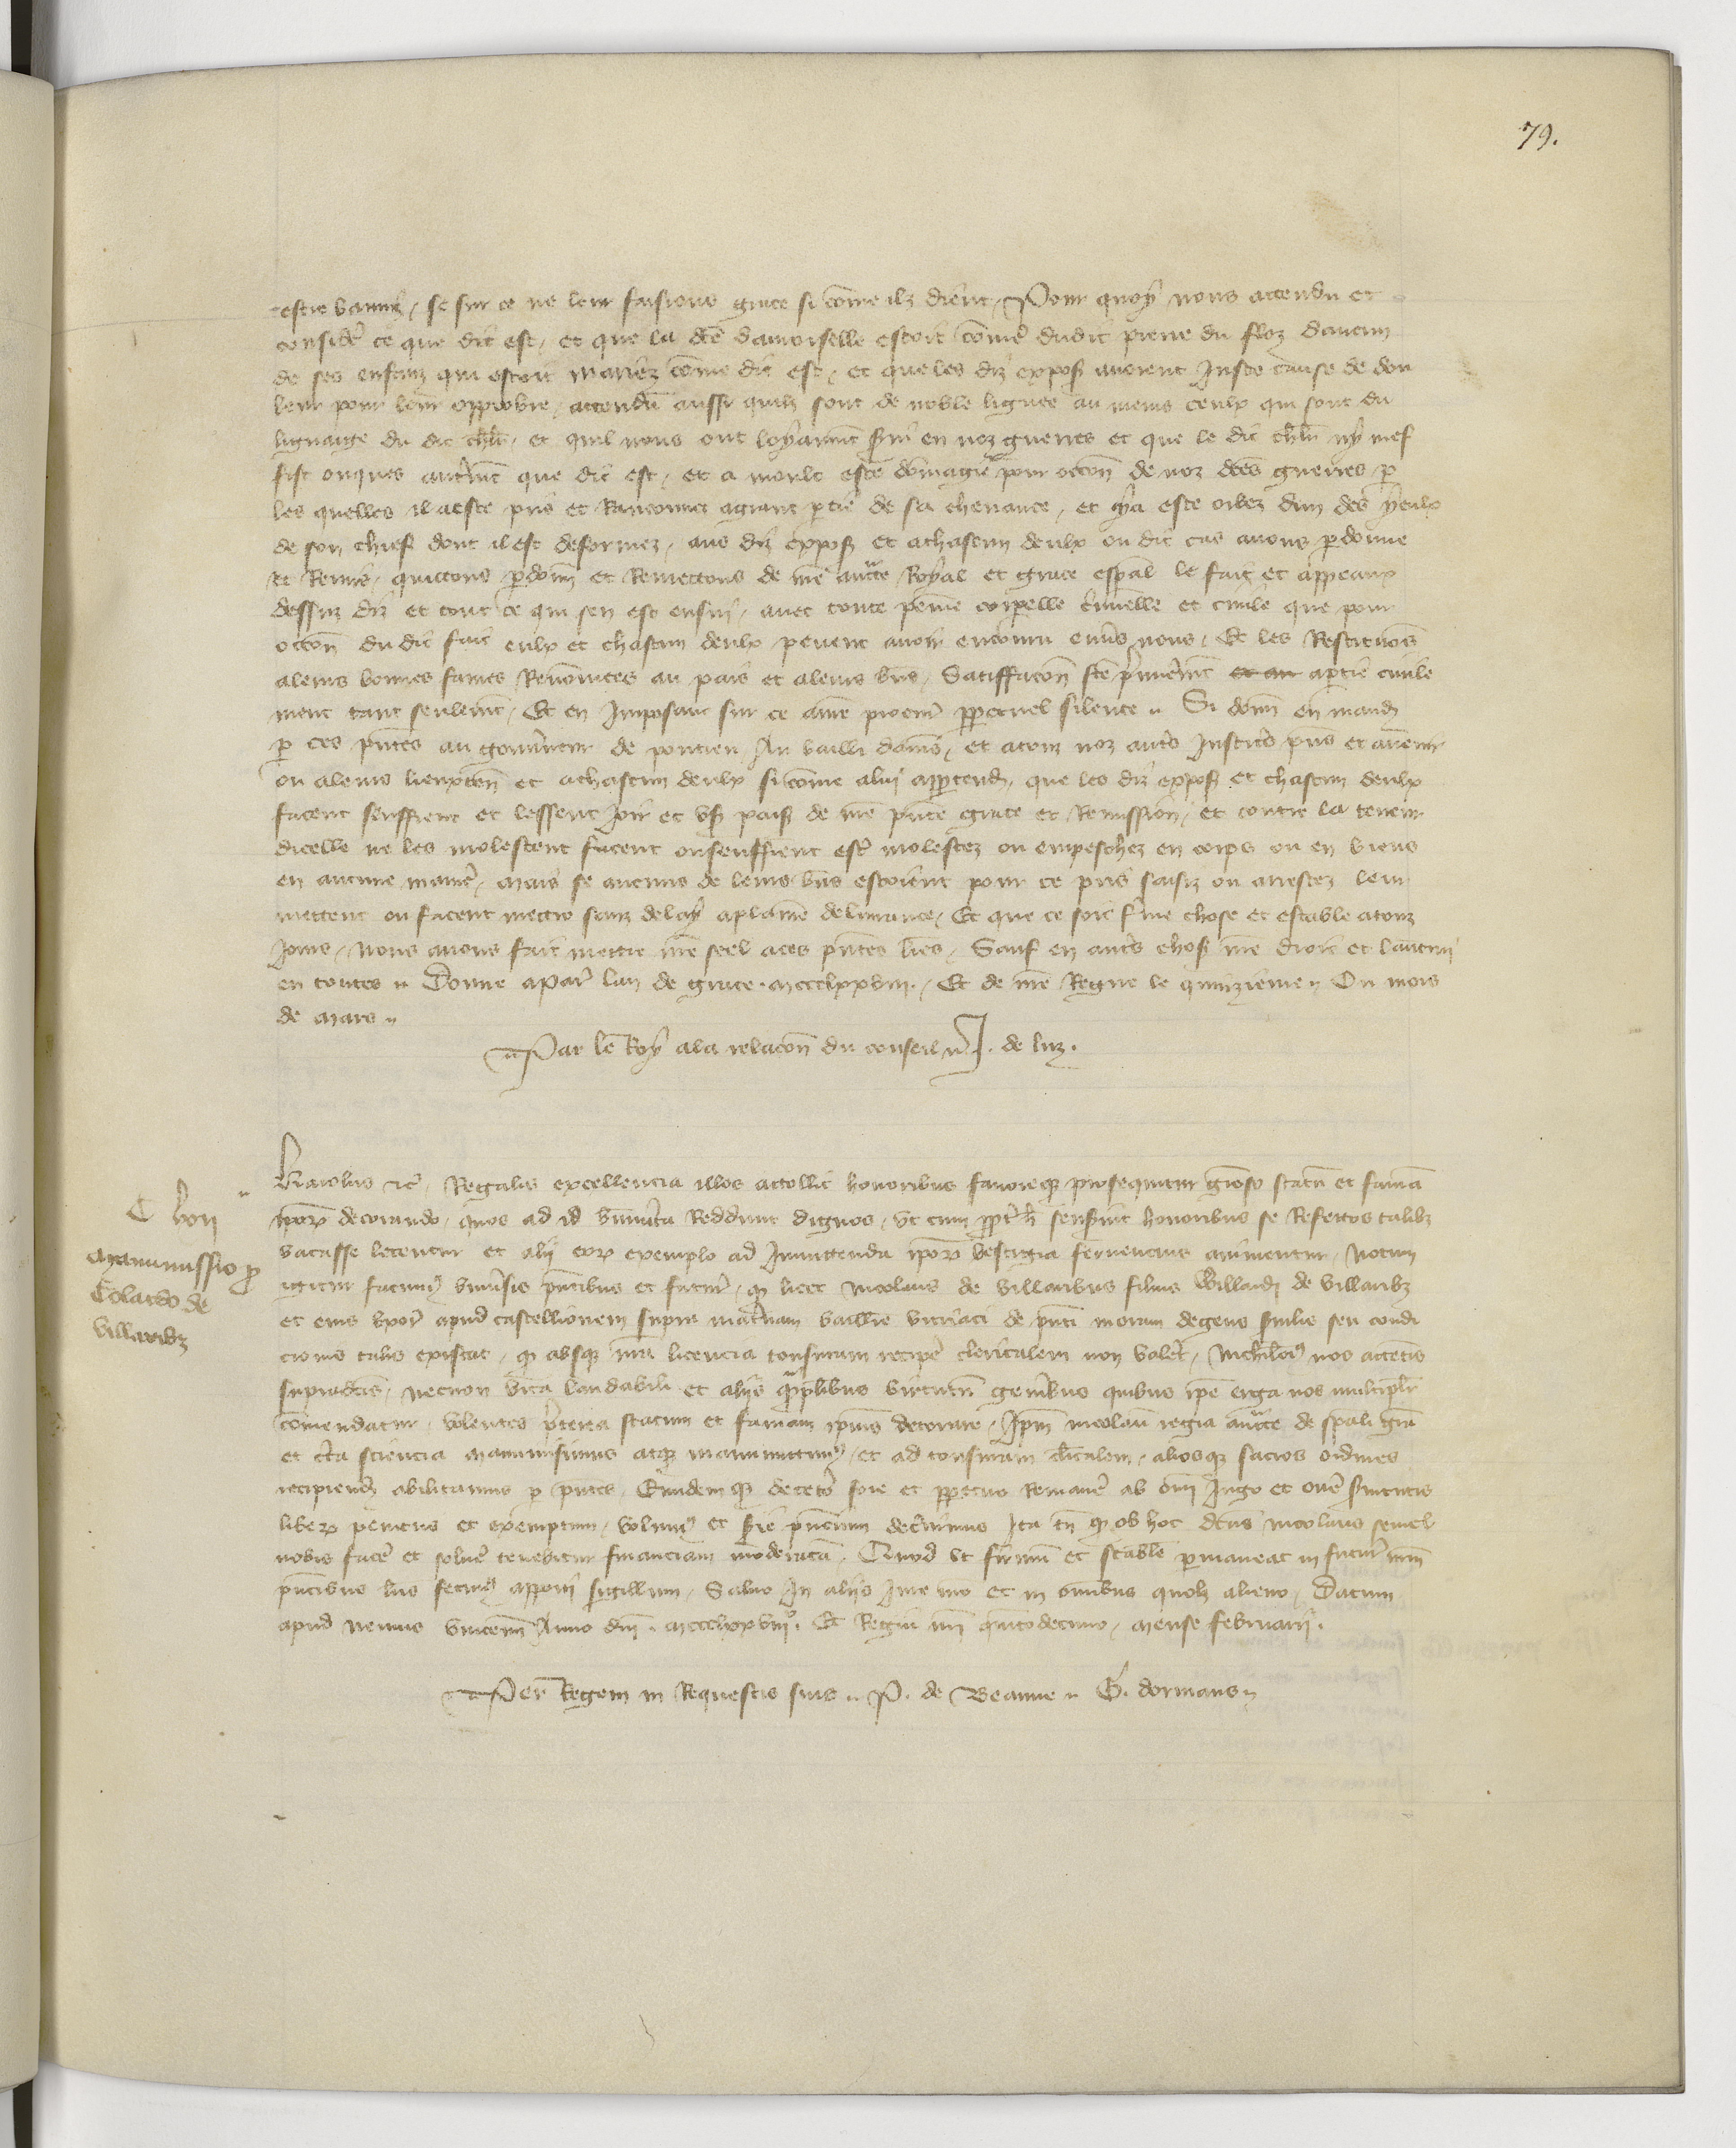 79.
estre banniz, se sur ce ne leur faisions grace si cōme ilz dient, Pour quoy nous attendu et
consideř ce que dit est, et que la dc̄e damoiselle estoit cōmeř dudit pierre du floz dancun
de ses enfanz qui estoit mariez cōme dit est, et que les diz expoš avoient juste cause de dou
leur pour leur opprobre, attendu aussi quilz sont de noble lignee au meins ceulx qui sont du
lignaige du dit chl̄r, et quil nous ont loyaumt̄ s̄vi en noz guerres et que le dit chl̄r ny mef
fist onques autremt̄ que dit est, et a moult este dōmagie pour occōn de noz dc̄es guerres, p̱
les quelles il a este pris et Ranconnez a grant p̱tie de sa chevance, et y a este crevez dun des yeulx
de son chief dont il est deformez, aus diz expoš et a chascun deulx ou dit cas avons p̱donne
et Remis, quittons p̱donn̄ et Remettons de nr̄e auct̄te Royal et grace esp̄al le fait et appeaux
dessus diz et tout ce qui sen est ensui, avec toute peine corpelle criminelle et civile que pour
occōn du dit fait eulx et chascun deulx pevent avoir encouru envers nous, Et les Restituōs
a leurs bonnes fames Renōmees au pais et a leurs biens, Satiffacōn fc̄e p̄mieremt̄ et au a partie civile
ment tant seulemt̄, Et en Imposant sur ce a nr̄e procur̄ p̱petuel silence Si donn̄ en mand̄
p̱ ces pn̄tes au gouv̄neur de pontieu Au bailli damiēs, et a touz noz aut̄s Justic̄s p̄ns et avenir
ou a leurs lieuxten̄ et a chascun deulx si cōme a lui app̱tend̄, que les diz expoš et chascun deulx
facent seuffrent et lessent joir et uš paiš de nr̄e pn̄te grace et Remission, et contre la teneur
dicelle ne les molestent facent ou seuffrent est̄ molestez ou empeschez en corps ou en biens
en aucune manier̄, Mais se aucuns de leurs biens estoient pour ce pris saisiz ou arrestez leur
mettent ou facent mettre sanz delay a plaine delivrance, Et que ce soit ferme chose et estable a touz
jours, Nous avons fait mettre nr̄e seel a ces pn̄tes lr̄es, Sauf en aut̄s choš nr̄e droit et lautrui
en toutes Donne a Paris lan de grace . mccclxxviii. Et de nr̄e Regne le quinzieme Ou mois
de Mars
Par le Roy a la relacōn du conseil J. de luz.
C bon
Manumissio p̱
Colardo de
Villaribȝ
Karolus etc̄, Regalis excellencia illos attollit honoribus favoreqȝ prosequitur gr̄oso statū et famā
ip̄oꝝ decorando, quos ad id bn̄merita Reddunt dignos, ut cum senserint honoribus se Refertos talibȝ
vacasse letentur et alij eoꝝ exemplo ad Imittenda ip̄oꝝ vestigia fervencius animentur, Notum
igitur facimus univ̄sis pn̄tibus et futur̄, qȝ licet Nicolaus de Villaribus filius de Villaribȝ
et eius uxor̄ apud castellionem supra maternam baillie vitriaci de pn̄ti moram degens servilis seu condi
cionis talis existat, qȝ absqȝ nr̄a licencia tonsuram recipe clericalem non valeret, Nichilom̄ nos attētis
supradc̄is, necnon vita laudabili et alijs q̄mplibus virtutū gen̄ibus quibus ip̄e erga nos multiplr̄
cōmendatur, Volentes p̄terea statum et famam ip̄ius decorare, Ip̄m nicolaū regia auct̄te de sp̄ali gr̄a
et c̄ta sciencia manumisimus atqȝ manumittimus, et ad tonsuram cl̄icalem, aliosqȝ sacros ordines
recipiend̄ abilitamus p̱ pn̄tes, Eundemqȝ decet̄o fore et p̱petuo Remanē ab om̄i Jugo et on̄e s̄vitutis
liberū penitus et exemptum, volumus et s̄ie pn̄cium dec̄nimus Ita tn̄ qȝ ob hoc dc̄us nicolaus semel
nobis facē et solvē tenebitur financiam moderatā, Quod ut firmū et stabile p̱maneat in futur̄ nr̄m
pn̄tibus lr̄is fecimus appoñi sigillum, Salvo In alijs Jure nr̄o et in om̄ibus quol̄ȝ alieno, Datum
apud nemus vincenn̄ Anno dn̄i . mccclxxviii°. Et Regni nr̄i quītodecimo, Mense februarij.
Per Regem in Requestis suis P. de Beaune G. dormans